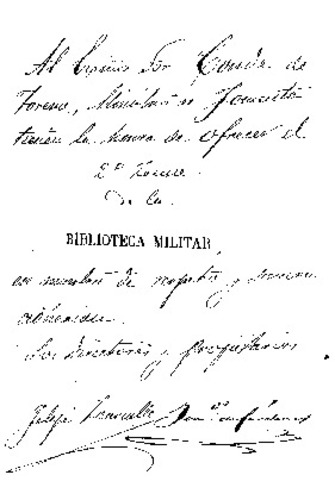 Al Excmo Sor Conde de
Toreno, Ministro de Fomento
tienen la honra de ofrecer el
2º tomo
de la
BIBLIOTECA MILITAR
en muestra de respeto y
adhesion
Los directores y propietarios
Felipe